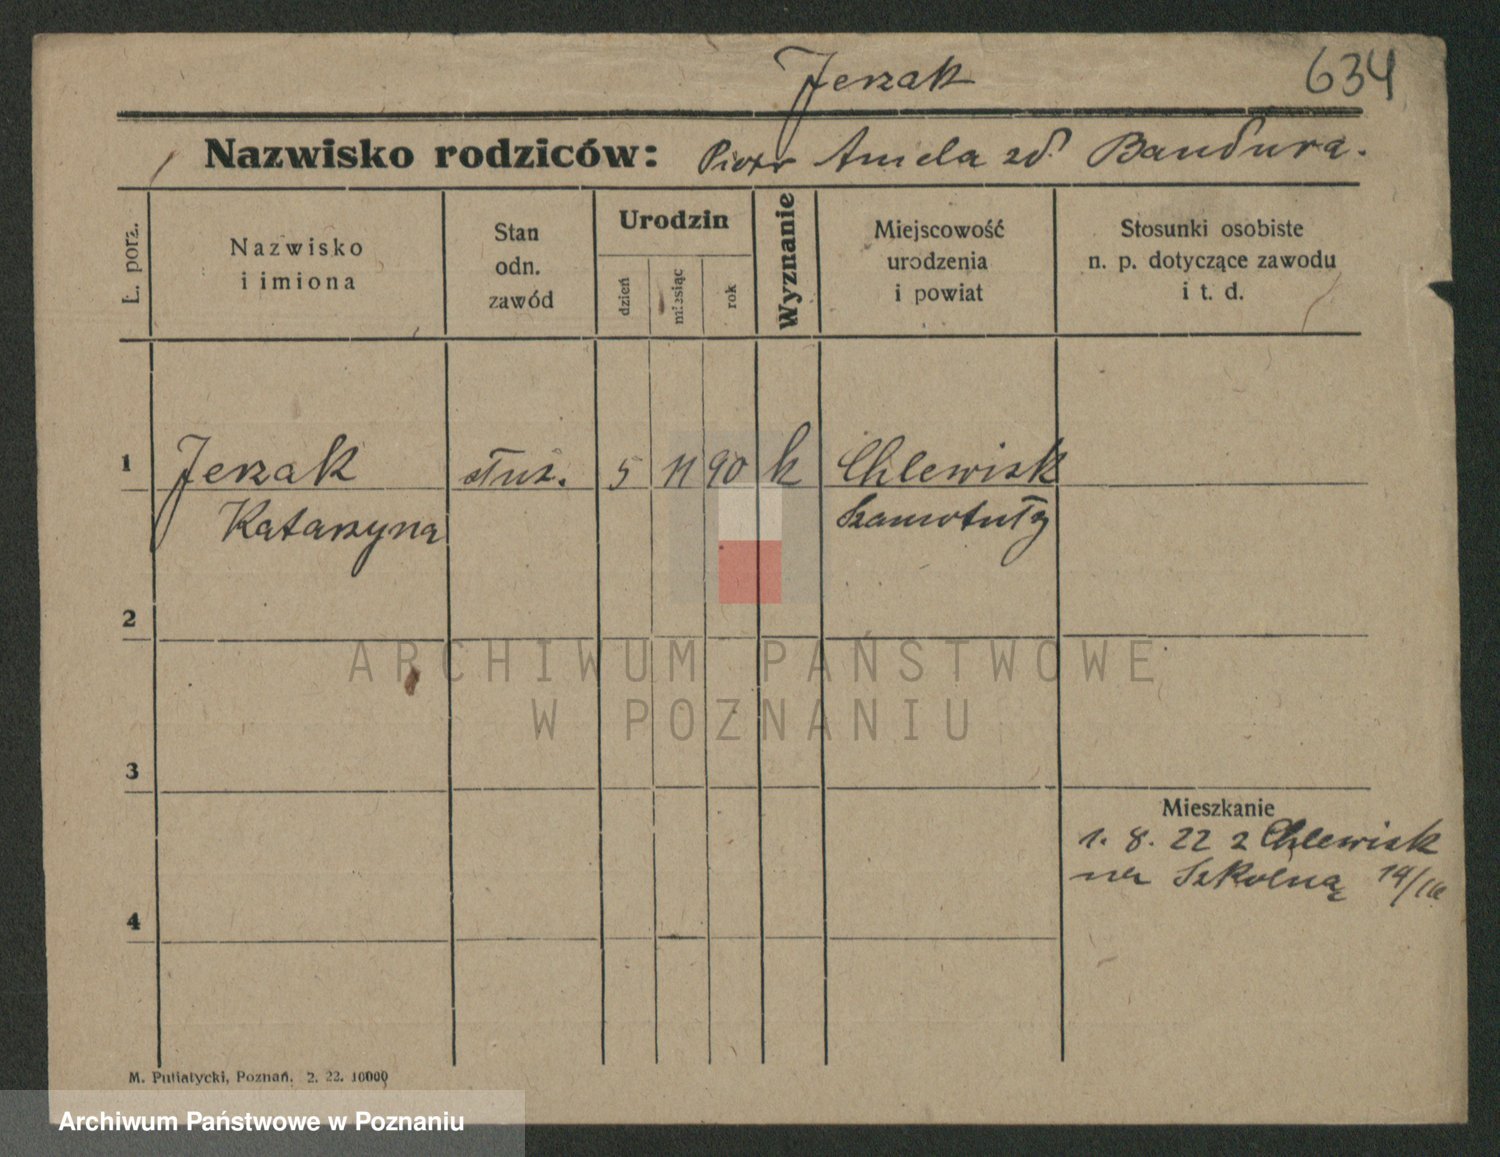 Jerzak
634
Nazwisko rodziców: Piotr Aniela zd. Bandura.
L. porz.
Nazwisko
i imiona
Stan
odn.
zawód
Urodzin
dzień
miesiąc
rok
Wyznanie
Miejscowość
urodzenia
i powiat
Stosunki osobiste
n. p. dotyczące zawodu
i t. d.
1 Jerzak służ. 5 11 90 k Chlewisk
Katarzyna Szamotuły
2
ARCHIWUM PAŃSTWOWE
W POZNANIU
3
Mieszkanie
1. 8. 22 z Chlewisk
na Szkolną
4
M. Putiatycki, Poznań. 2. 22. 10000
Archiwum Państwowe w Poznaniu